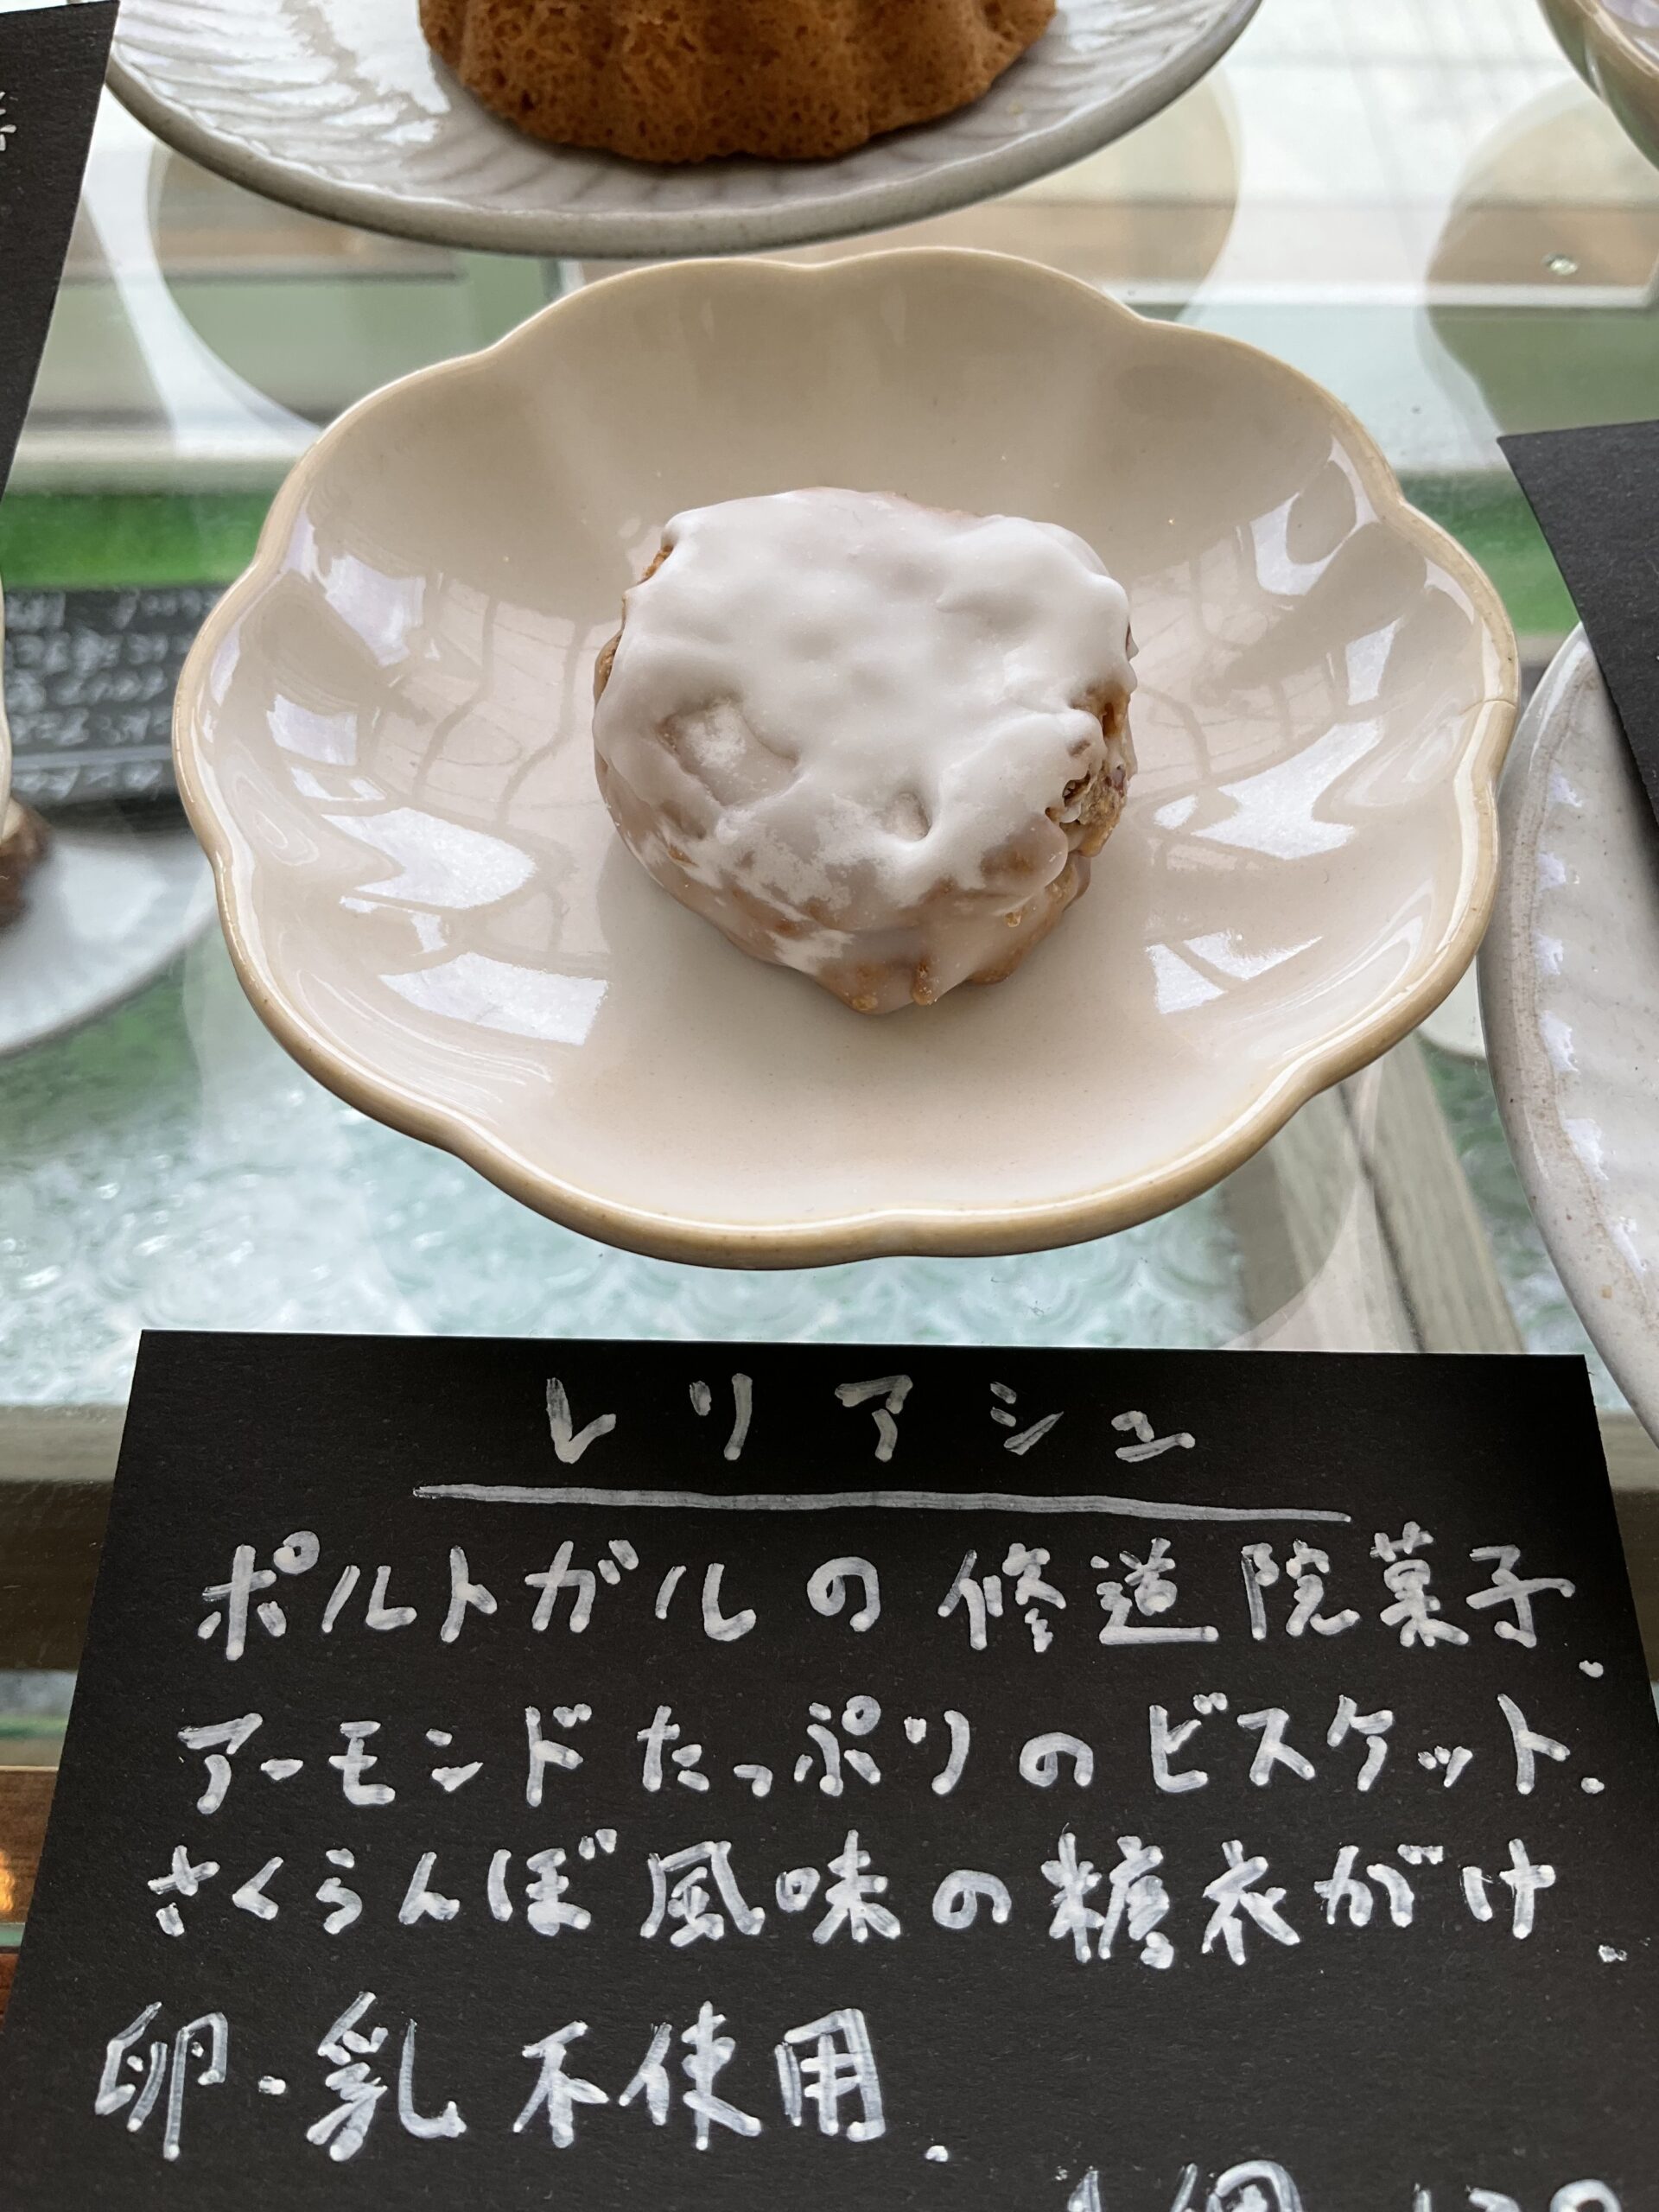 レリアシュ
ポルトガルの修道院菓子.
アーモンドたっぷりのビスケット.
さくらんぼ風味の糖衣がけ.
卵・乳不使用.